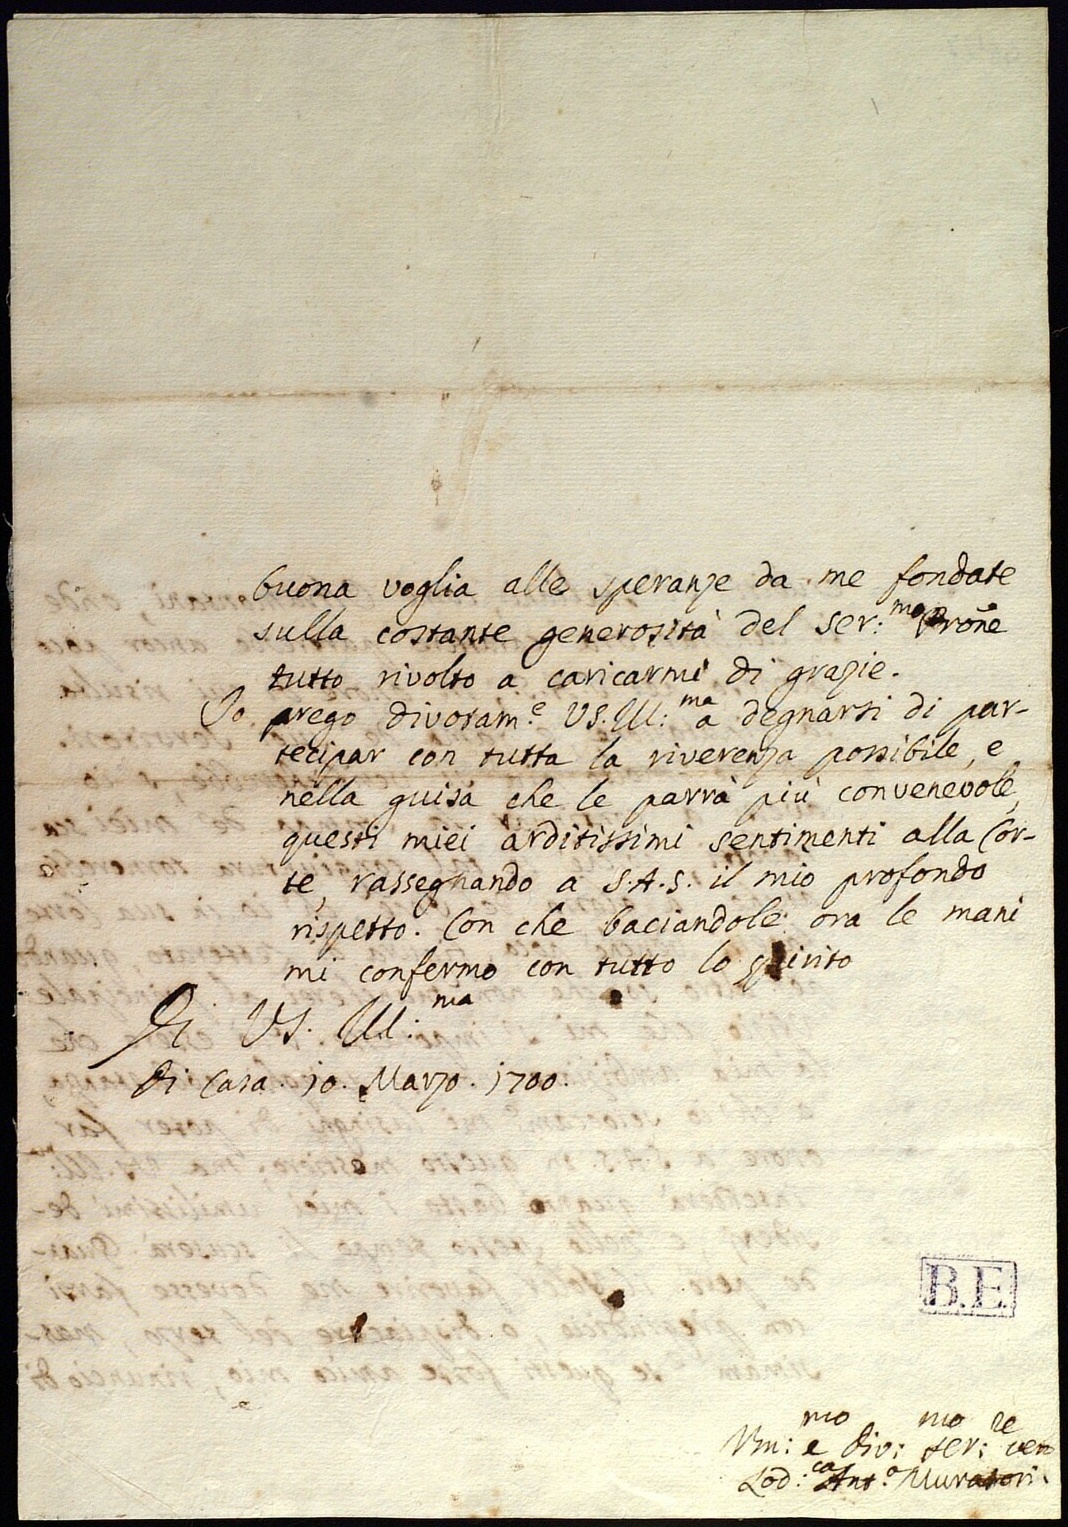 buona voglia alle speranze da me fondate
sulla costante generosità del Ser:mo Prone
tutto rivolto a caricarmi di grazie.
Io prego divotam.e VS.Ill:ma a degnarsi di par-
tecipar con tutta la riverenza possibile, e
nella guisa che le parrà più convenevole,
questi miei arditissimi sentimenti alla Cor-
te, rassegnando a S.A.S. il mio profondo
rispetto. Con che baciandole ora le mani
mi confermo con tutto lo spirito
Di VS. Ill:ma
Di Casa. 10. Marzo. 1700.
B.E.
Vm:mo e div:mo ser:re vero
Lod:co Ant.o Muratori.